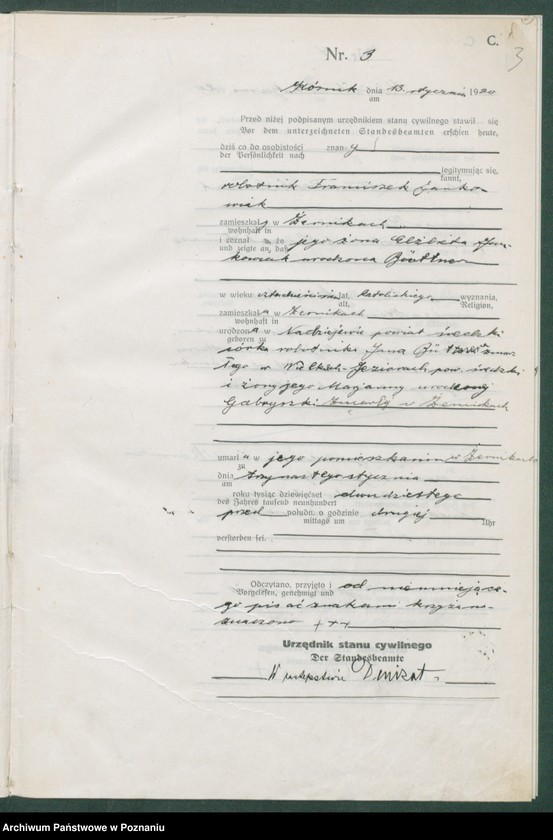 C.
3
Nr. 3
Kórnik dnia 13. stycznia 1920
am
Przed niżej podpisanym urzędnikiem stanu cywilnego stawił się
Vor dem unterzeichneten Standesbeamten erschien heute,
dziś co do osobistości znany
der Persönlichkeit nach
legitymując się,
kannt,
robotnik Franciszek Janko-
wiak
zamieszkały w Żernikach
wohnhaft in
i zeznał, że jego żona Elżbieta Jan-
und zeigte an, daß
kowiak urodzona Büttner
w wieku lat, katolickiego wyznania,
alt, Religion,
zamieszkała w Żernikach
wohnhaft in
urodzona w Nadziejewie powiat średzki
geboren zu
córka robotnika Jana zmar-
łego w Wielkich-Jeziorach pow. średzki
i żony jego Marjanny urodzonej
Gabryszki zmarłej w Żernikach
umarła w jego pomieszkaniu w Żernikach
zu
dnia trzynastego stycznia
am
roku tysiąc dziewięćset dwudziestego
des Jahres tausend neunhundert
przed połudn. o godzinie drugiej
mittags um Uhr
verstorben sei.
Odczytano, przyjęto i od nieumiejące-
Vorgelesen, genehmigt und
go pisać znakami krzyża na-
znaczono +++
Urzędnik stanu cywilnego
Der Standesbeamte
W zastępstwie
Archiwum Państwowe w Poznaniu